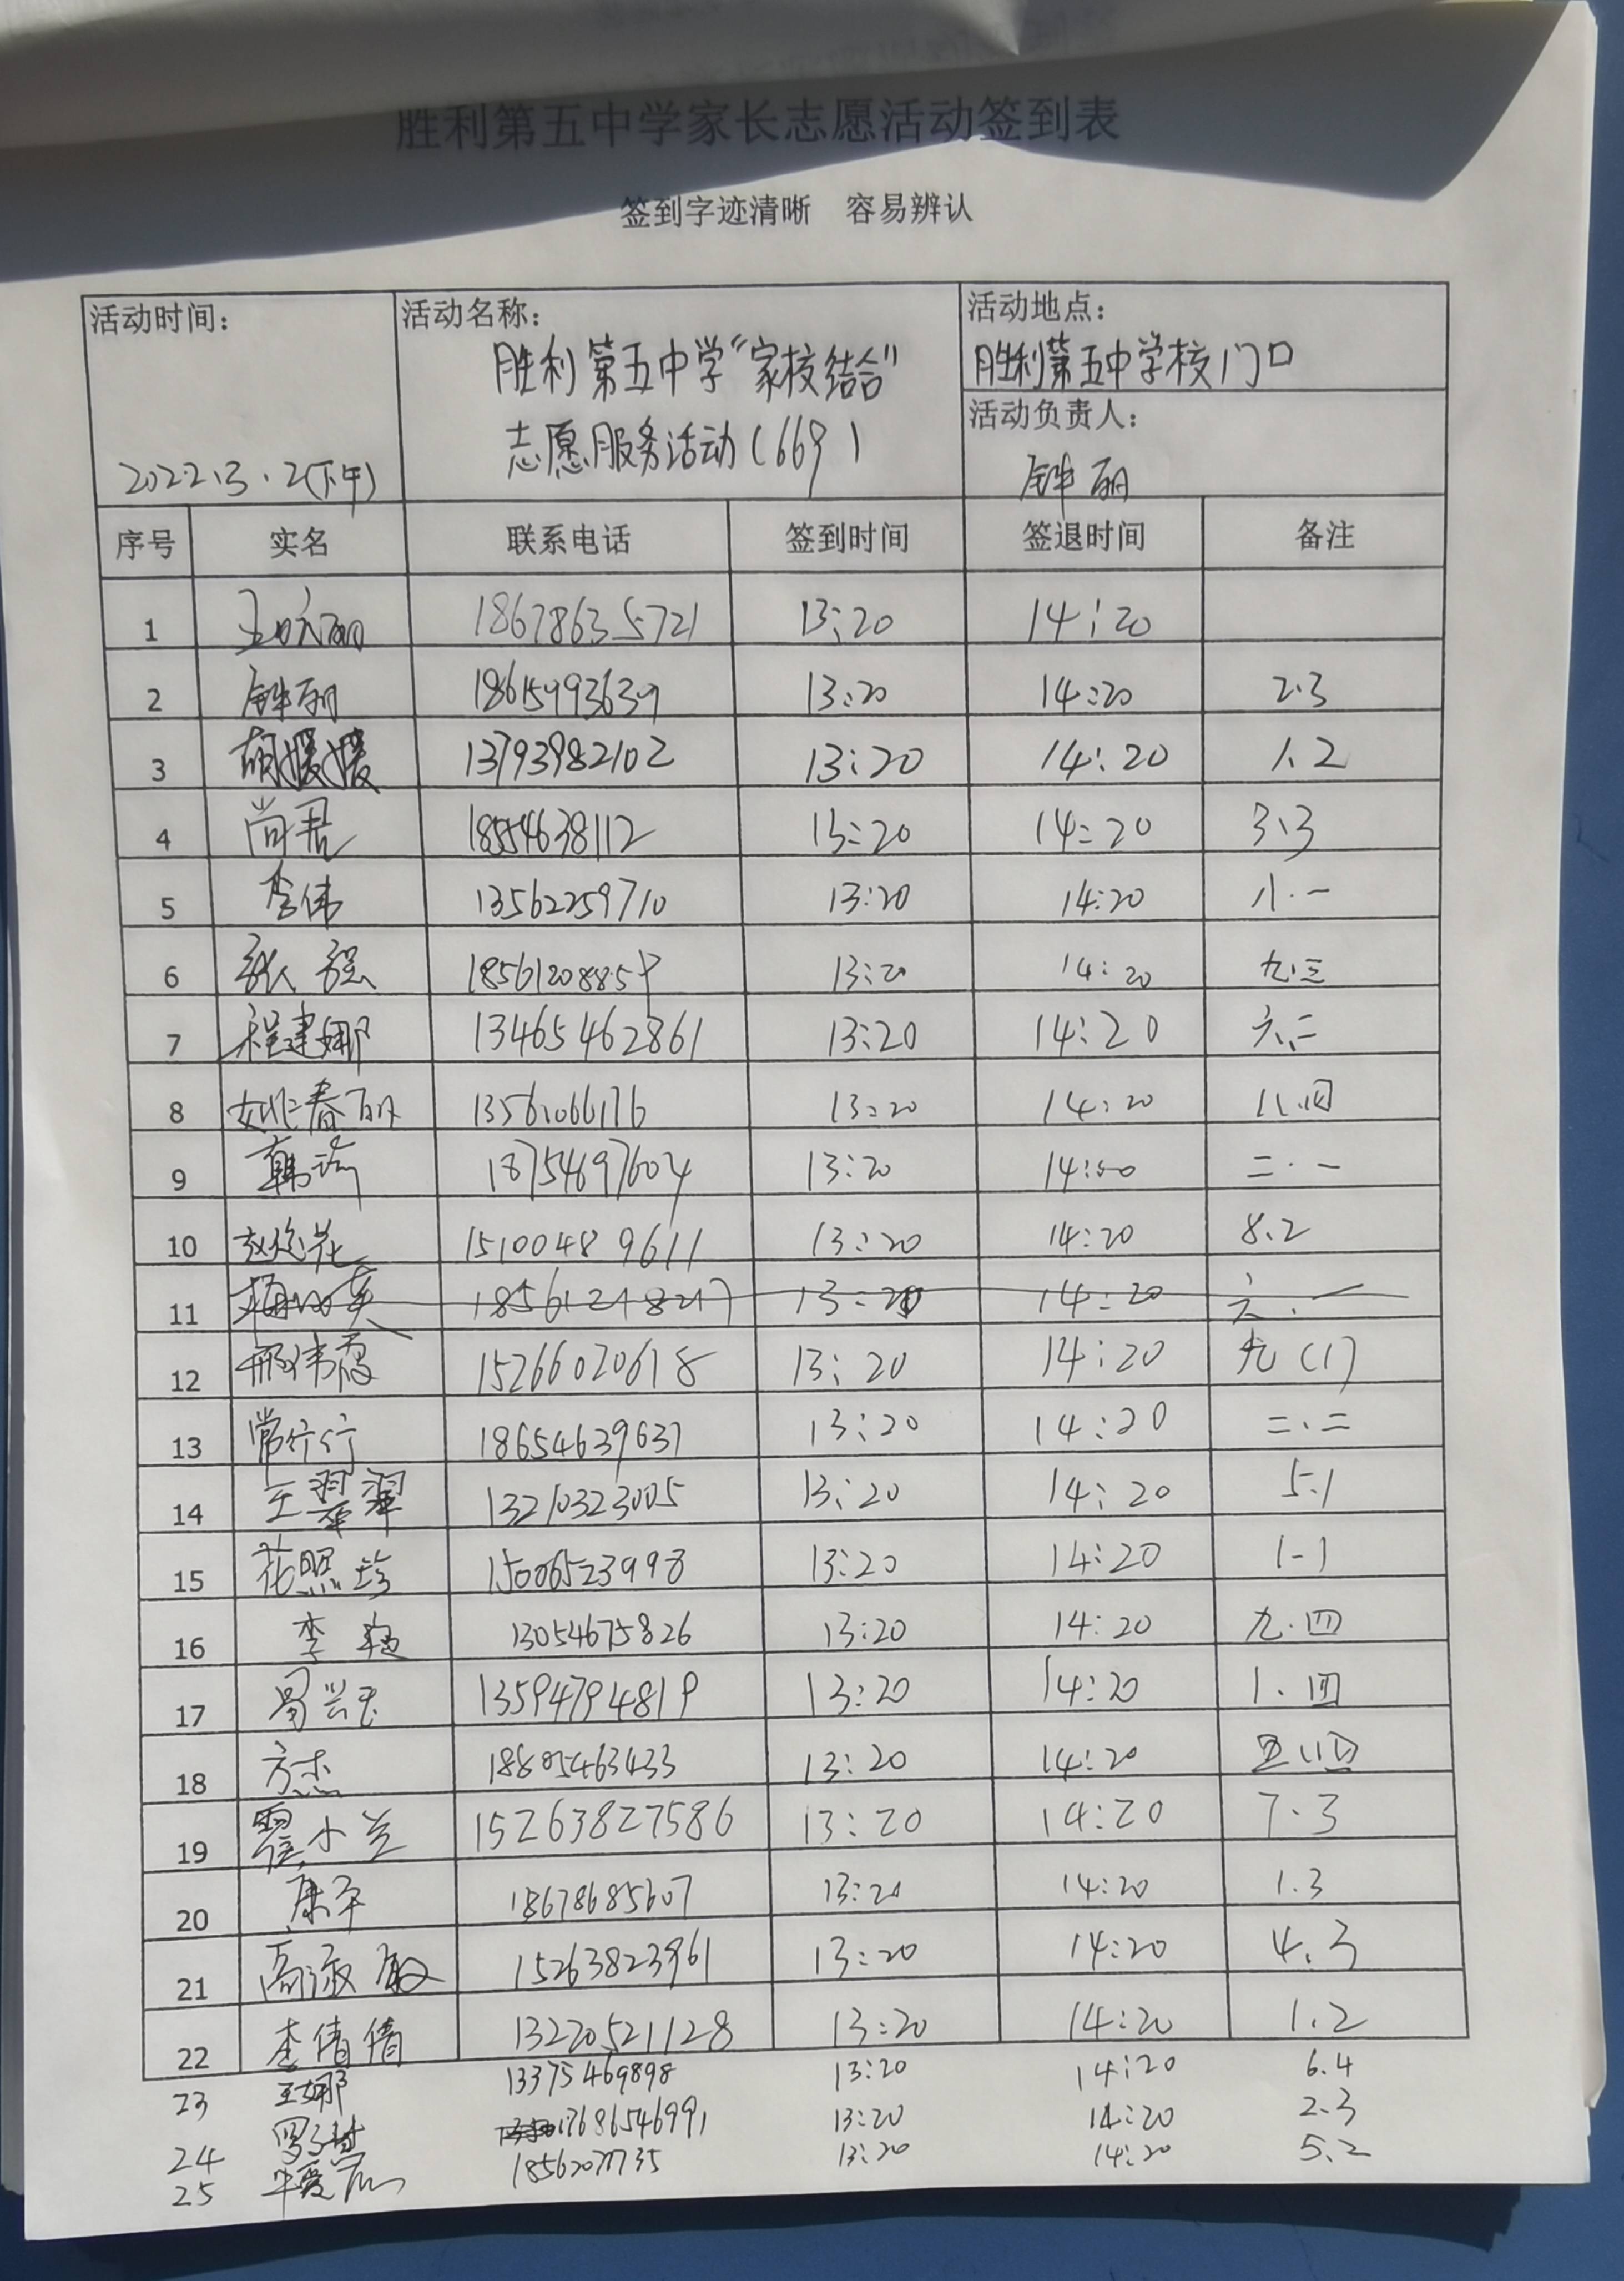 胜利第五中学家长志愿活动签到表
签到字迹清晰 容易辨认
活动时间: 2022.3.2(下午)
活动名称: 胜利第五中学“家校结合”
志愿服务活动(669)
活动地点:
胜利第五中学校门口
活动负责人:
丽
序号 实名 联系电话 签到时间 签退时间 备注
1 18678635721 13:20 14:20
2 丽 13:20 14:20 2.3
3 胡媛媛 13793982102 13:20 14:20 1.2
4 尚君 18554638112 13:20 14:20 3.3
5 李伟 13562259710 13:20 14:20 八.一
6 张强 13:20 14:20 九.三
7 程建娜 13465462861 13:20 14:20 六.二
8 姚春丽 13561066176 13:20 14:20 八.四
9 韩 18754697604 13:20 14:20 二.一
10 15100489611 13:20 14:20 8.2
11 13:20 14:20 六.一
12 邢伟霞 15266020618 13:20 14:20 九(1)
13 常行行 18654639631 13:20 14:20 二.二
14 王翠翠 13210323005 13:20 14:20 5.1
15 花照玲 15006523998 13:20 14:20 1-1
16 李 13054675826 13:20 14:20 九.四
17 13594794819 13:20 14:20 1.四
18 方杰 18805463433 13:20 14:20 五.四
19 霍小兰 15263827586 13:20 14:20 7.3
20 康平 18678685607 13:20 14:20 1.3
21 高淑敏 15263823961 13:20 14:20 4.3
22 李倩倩 13220521128 13:20 14:20 1.2
23 王娜 13375469898 13:20 14:20 6.4
24 17686546991 13:20 14:20 2.3
25 13:20 14:20 5.2